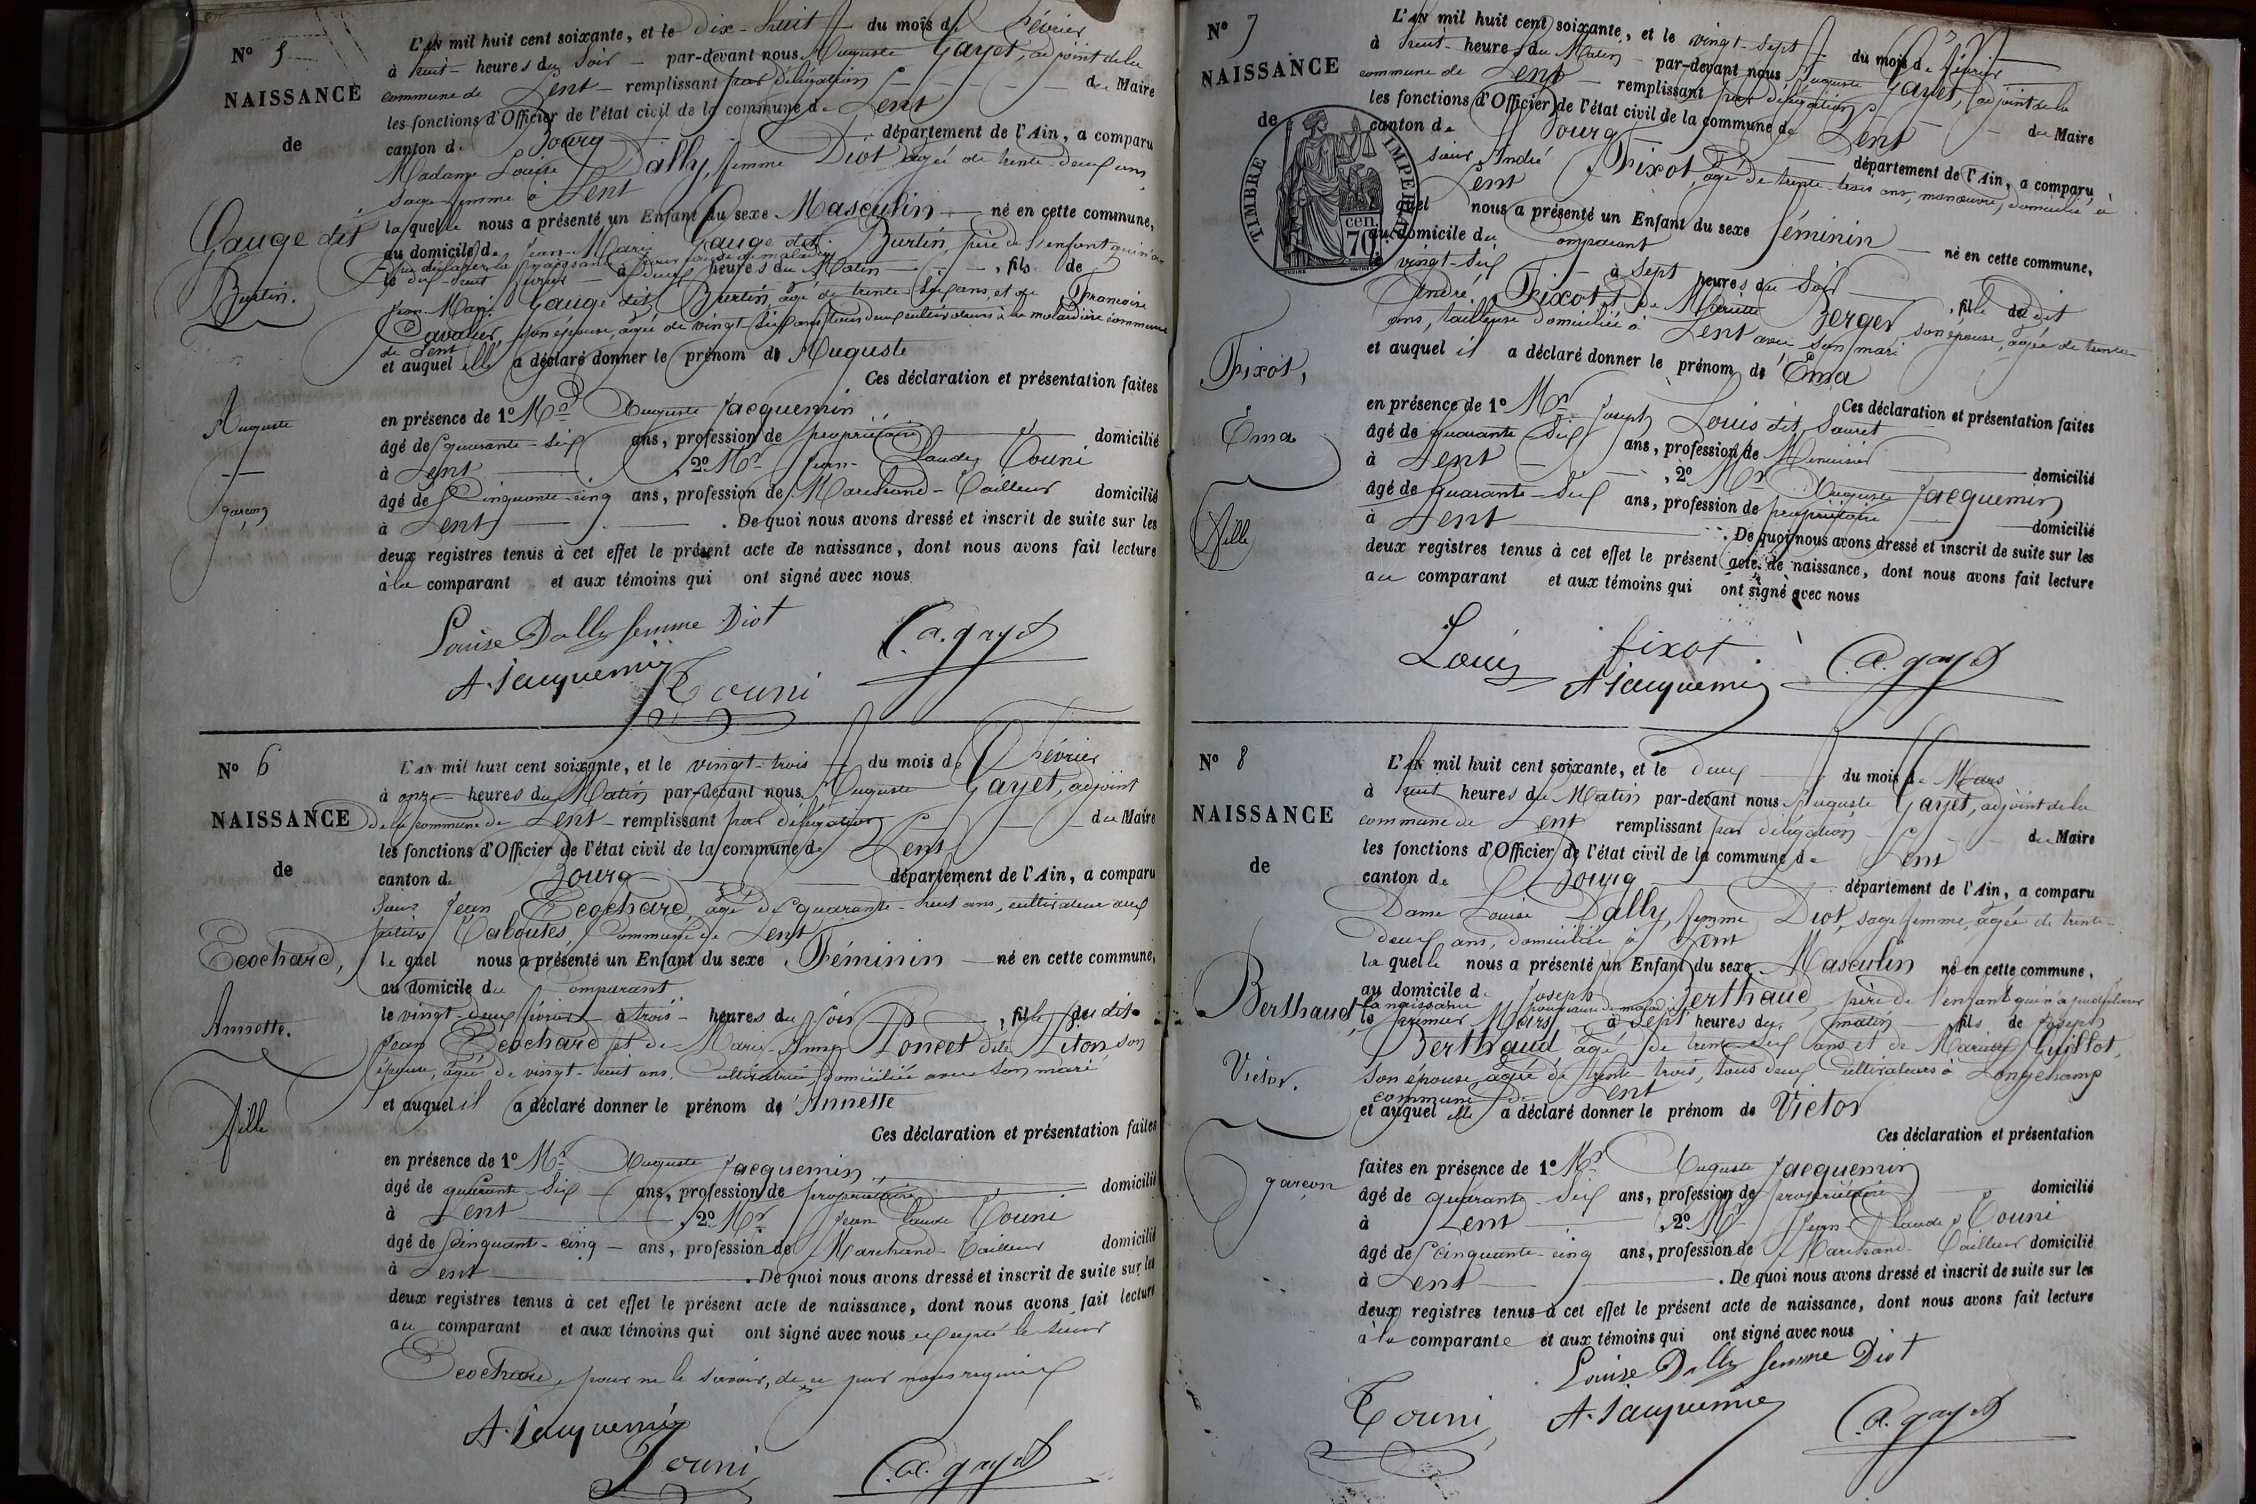 N° 5
NAISSANCE
de
Gauge dit
Burtin.
Auguste
garçon
L'AN mil huit cent soixante, et le dix-huit du mois de février
à huit heures du soir par-devant nous Auguste Gayet, adjoint de la
commune de Lent remplissant par délégation du Maire
les fonctions d'Officier de l'état civil de la commune de Lent
canton de Bourg département de l'Ain, a comparu
Madame Louise Dally, femme Diot âgée de trente deux ans,
sage-femme à Lent
laquelle nous a présenté un Enfant du sexe Masculin né en cette commune,
au domicile de Jean-Marie Gauge dit Burtin, père de l'enfant qui n'a
pu déclarer la naissance pour cause de maladie
le dix-huit février à deux heures du Matin, fils de
Jean-Marie Gauge dit Burtin, âgé de trente-six ans, et de
Cavalier, son épouse, âgée de vingt-six ans, tous deux cultivateurs à la maladière commune
de Lent
et auquel elle a déclaré donner le prénom de Auguste
Ces déclaration et présentation faites
en présence de 1° Mr Auguste Jacquemin
âgé de quarante-six ans, profession de propriétaire domicilié
à Lent, 2° Mr Jean-Claude Touni
âgé de Cinquante-cinq ans, profession de Marchand-Tailleur domicilié
à Lent. De quoi nous avons dressé et inscrit de suite sur les
deux registres tenus à cet effet le présent acte de naissance, dont nous avons fait lecture
à la comparant et aux témoins qui ont signé avec nous
Louise Dally femme Diot
A. Jacquemin Touni a. gayet
N° 6
NAISSANCE
de
Ecochard,
Annette.
fille
L'AN mil huit cent soixante, et le vingt-trois du mois de février
à onze heures du Matin par-devant nous Auguste Gayet, adjoint
de la commune de Lent remplissant par délégation du Maire
les fonctions d'Officier de l'état civil de la commune de Lent
canton de Bourg département de l'Ain, a comparu
Sieur Jean Ecochard, âgé de quarante-huit ans, cultivateur aux
petites Caboutes, commune de Lent
lequel nous a présenté un Enfant du sexe Féminin né en cette commune,
au domicile du comparant
le vingt-deux février à trois heures du soir, fille du dit
Jean Ecochard et de Marie-Anne Poncet dite Piton son
épouse, âgée de vingt-huit ans, cultivatrice, domiciliée avec son mari
et auquel il a déclaré donner le prénom de Annette
Ces déclaration et présentation faites
en présence de 1° Mr Auguste Jacquemin
âgé de quarante-six ans, profession de propriétaire domicilié
à Lent, 2° Mr Jean Claude Touni
âgé de Cinquante-cinq ans, profession de Marchand-Tailleur domicilié
à Lent. De quoi nous avons dressé et inscrit de suite sur les
deux registres tenus à cet effet le présent acte de naissance, dont nous avons fait lecture
au comparant et aux témoins qui ont signé avec nous excepté le sieur
Ecochard, pour ne le savoir, de ce par nous requis
A. Jacquemin
Touni a. gayet
N° 7
NAISSANCE
de
TIMBRE IMPERIAL
70 cen
Fixot,
Ema
fille
L'AN mil huit cent soixante, et le vingt-sept du mois de février
à huit heures du Matin par-devant nous Auguste Gayet, adjoint de la
commune de Lent remplissant par délégation du Maire
les fonctions d'Officier de l'état civil de la commune de Lent
canton de Bourg département de l'Ain, a comparu
sieur André Fixot, âgé de trente-trois ans, manœuvre, domicilié à
Lent
quel nous a présenté un Enfant du sexe féminin né en cette commune,
au domicile du comparant
le vingt-six à sept heures du soir, fille du dit
André Fixot et de Mariette Berger son épouse, âgée de trente
ans, tailleuse domiciliée à Lent avec son mari
et auquel il a déclaré donner le prénom de Ema
Ces déclaration et présentation faites
en présence de 1° Mr Joseph Louis dit Sauret
âgé de quarante-six ans, profession de Menuisier domicilié
à Lent, 2° Mr Auguste Jacquemin
âgé de quarante-six ans, profession de propriétaire domicilié
à Lent. De quoi nous avons dressé et inscrit de suite sur les
deux registres tenus à cet effet le présent acte de naissance, dont nous avons fait lecture
au comparant et aux témoins qui ont signé avec nous
Louis fixot a. gayet
A. Jacquemin
N° 8
NAISSANCE
de
Berthaud,
Victor.
garçon
L'AN mil huit cent soixante, et le deux du mois de Mars
à huit heures du Matin par-devant nous Auguste Gayet, adjoint de la
commune de Lent remplissant par délégation du Maire
les fonctions d'Officier de l'état civil de la commune de Lent
canton de Bourg département de l'Ain, a comparu
Dame Louise Dally, femme Diot, sage femme, âgée de trente-
deux ans, domiciliée à Lent
laquelle nous a présenté un Enfant du sexe Masculin né en cette commune,
au domicile de Joseph Berthaud père de l'enfant qui n'a pu déclarer
la naissance pour cause de maladie
le premier Mars à sept heures du matin fils de Joseph
Berthaud âgé de trente-six ans et de Mariette Guillot,
son épouse âgée de trente-trois, tous deux cultivateurs à Longchamp
commune de Lent
et auquel elle a déclaré donner le prénom de Victor
Ces déclaration et présentation
faites en présence de 1° Mr Auguste Jacquemin
âgé de quarante-six ans, profession de propriétaire domicilié
à Lent, 2° Mr Jean-Claude Touni
âgé de Cinquante-cinq ans, profession de Marchand-Tailleur domicilié
à Lent. De quoi nous avons dressé et inscrit de suite sur les
deux registres tenus à cet effet le présent acte de naissance, dont nous avons fait lecture
à la comparante et aux témoins qui ont signé avec nous
Louise Dally femme Diot
Touni A. Jacquemin a. gayet